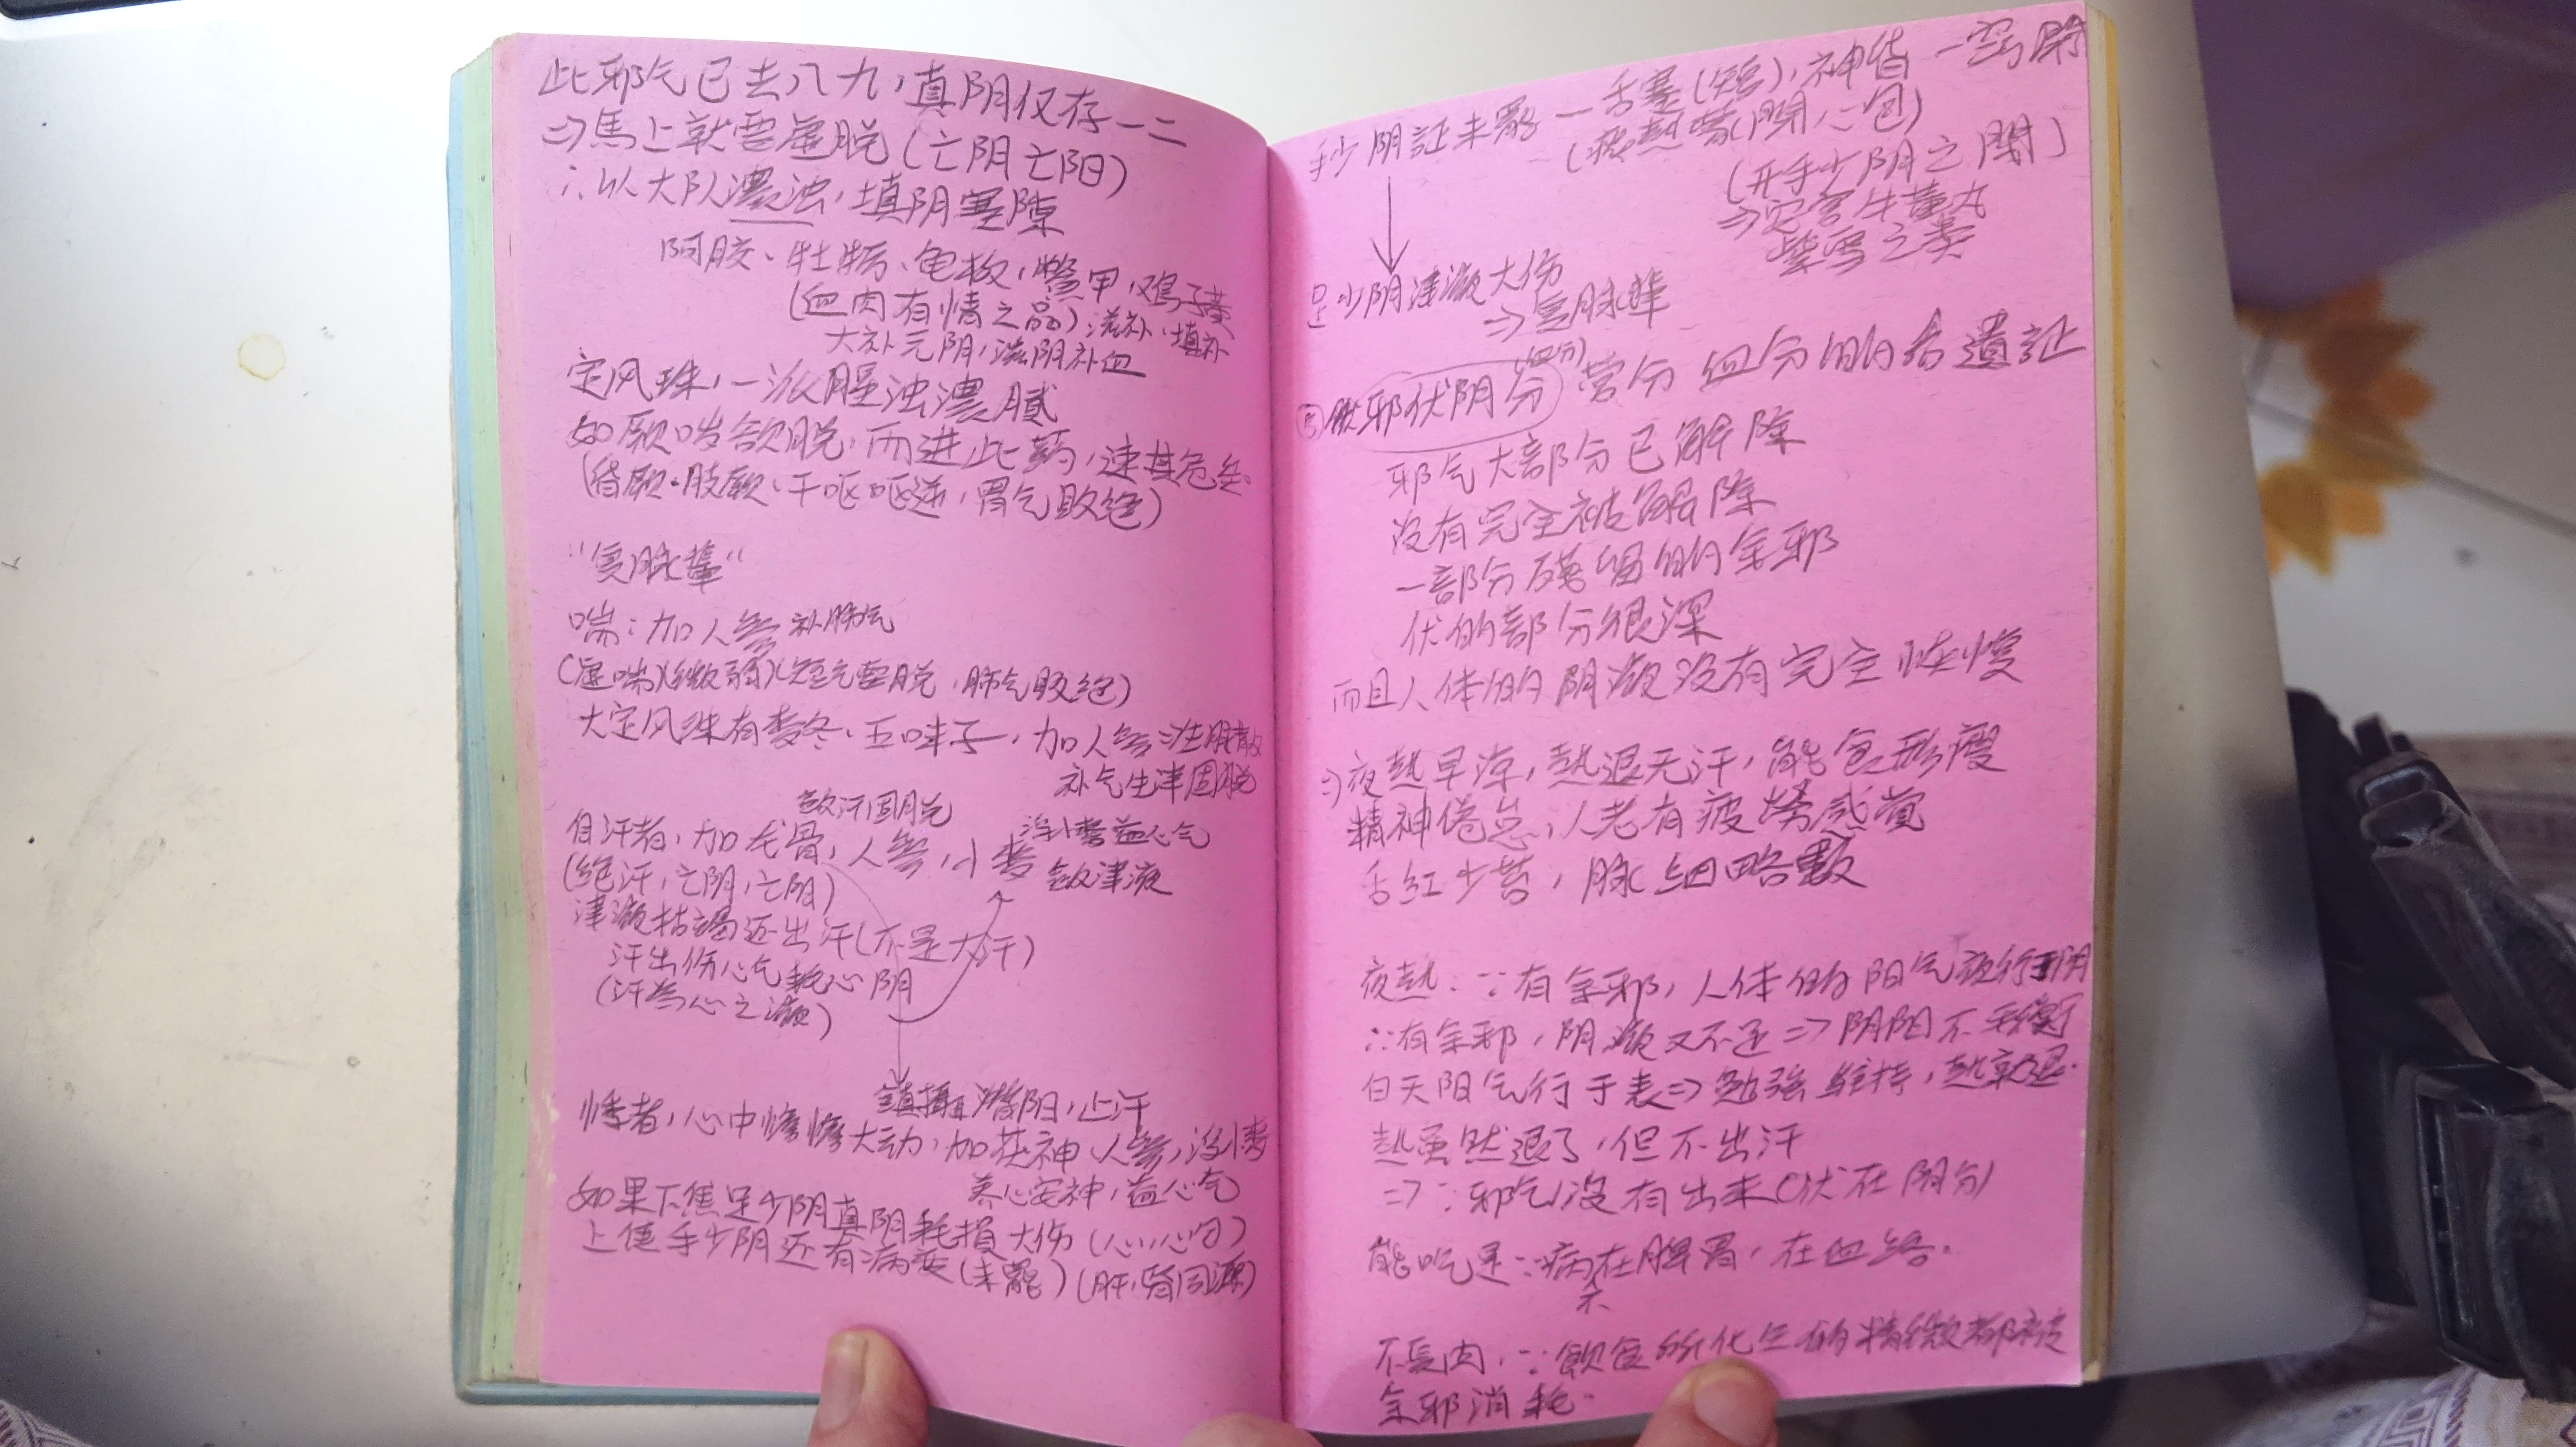 此邪气已去八九，真阴仅存一二
⇒馬上就要虚脱（亡阴亡阳）
∴以大队濃浊，填阴塞隙
阿胶、牡蛎、龟板，鳖甲，鸡子黄
（血肉有情之品）：滋补、填补
大补元阴，滋阴补血
定风珠，一派腥浊濃膩
如厥喘欲脱，而进此药，速其危矣。
（昏厥、肢厥、干呕呕逆，胃气敗绝）
"复脉輩"
喘：加人參 补肺气
（虚喘）（微弱）（短气要脱，肺气敗绝）
大定风珠有麥冬、五味子，加人參：生脉散
补气生津固脱
斂汗固脱
浮小麥益心气
自汗者，加龙骨，人參，小麥 斂津液
（绝汗，亡阴，亡阳）
津液枯竭还出汗（不是大汗）
汗出伤心气耗心阴
（汗為心之液）
鎮攝潛阳，止汗
悸者，心中憺憺大动，加茯神、人參，浮小麥
养心安神，益心气
如果下焦足少阴真阴耗損大伤
上焦手少阴还有病変（未罷）（肝，腎同源）
手少阴証未罷 — 舌蹇（短），神昏 — 窍閉
（痰熱蒙閉心包）
（开手少阴之閉）
⇒安宮牛黄丸
紫雪之类
↓
足少阴津液大伤
⇒复脉輩
（血分）
邪伏阴分 营分血分的后遺証
邪气大部分已解除
没有完全被解除
一部分残留的余邪
伏的部分很深
而且人体的阴液没有完全恢復
⇒夜熱早凉，熱退无汗，能食形瘦
精神倦怠，人老有疲勞感觉
舌紅少苔，脉细略數
夜熱：∵有余邪，人体的阳气夜行于阴
∴有余邪，阴液又不足⇒阴阳不平衡
白天阳气行于表⇒勉強維持，熱就退。
熱虽然退了，但不出汗
⇒∵邪气没有出来（伏在阴分）
能吃是∵病不在脾胃，在血络。
不長肉，∵飲食所化生的精微都被
余邪消耗。